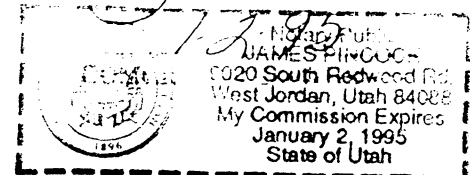 1-2-95
Notary Public
JAMES PINCOCK
9020 South Redwood Rd.
West Jordan, Utah 84088
My Commission Expires
January 2, 1995
State of Utah
1896